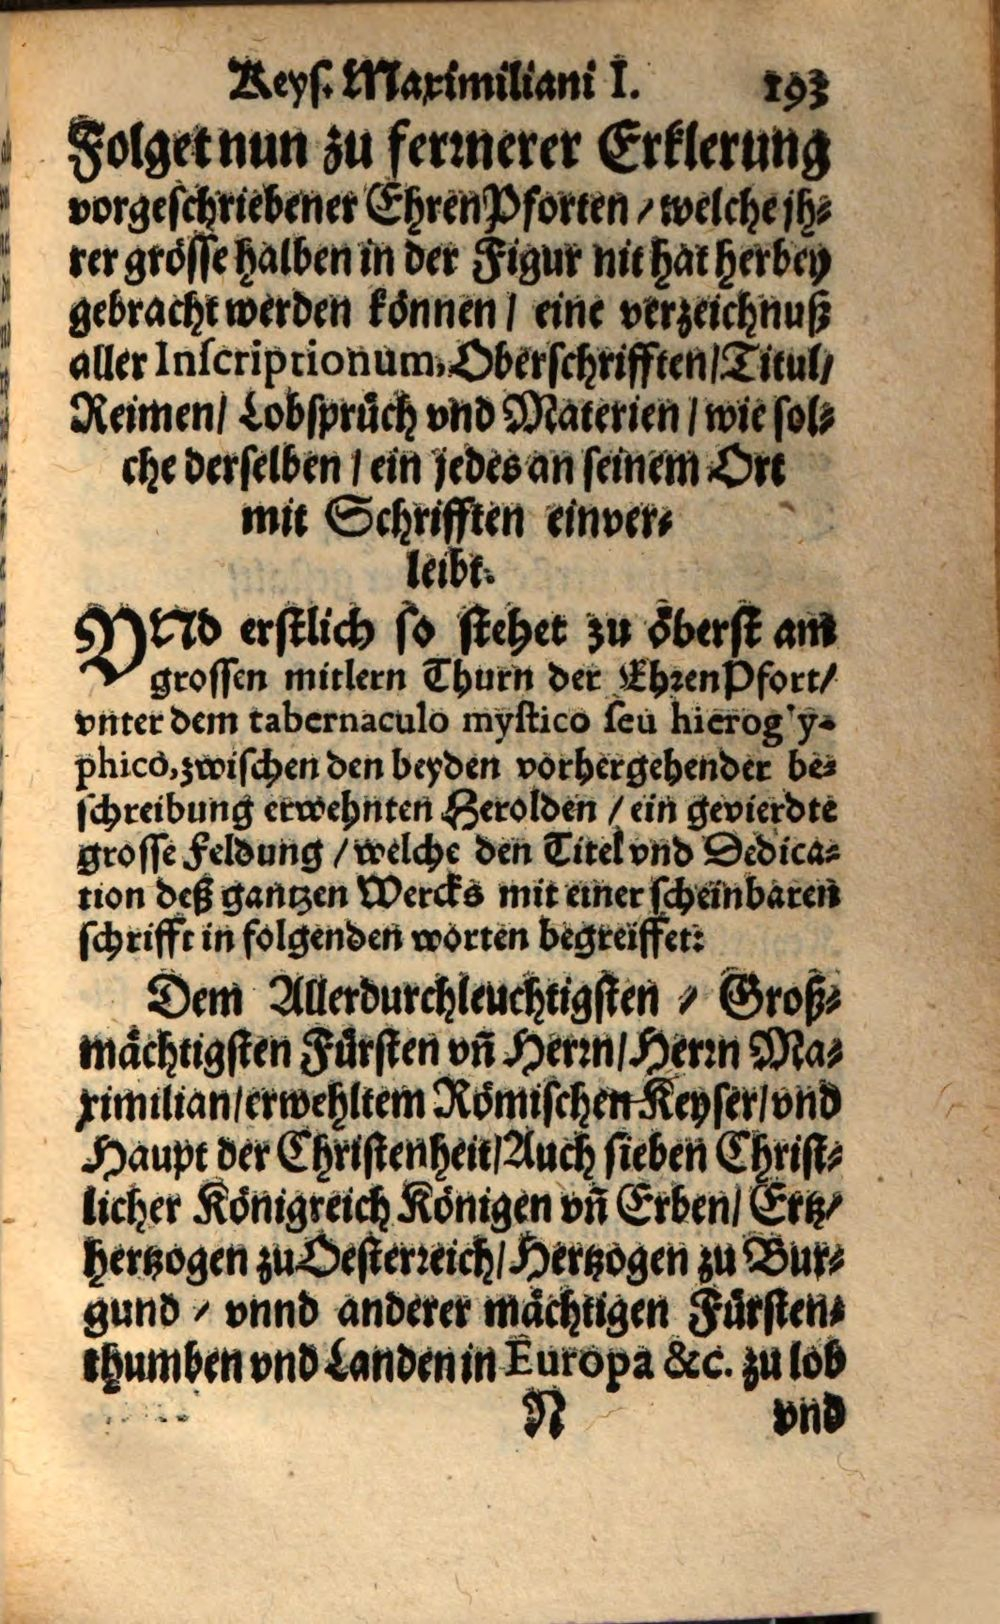 Keys. Maximiliani I. 193
Folget nun zu fermerer Erklerung
vorgeschriebener EhrenPforten / welche jh⸗
rer grösse halben in der Figur nit hat herbey
gebracht werden können / eine verzeichnuß
aller Inscriptionum, Oberschrifften / Titul /
Reimen / Lobsprüch vnd Materien / wie sol⸗
che derselben / ein jedes an seinem Ort
mit Schrifften einver⸗
leibt.
VNd erstlich so stehet zu öberst am
grossen mitlern Thurn der EhrenPfort /
vnter dem tabernaculo mystico seu hierogly⸗
phico, zwischen den beyden vorhergehender be⸗
schreibung erwehnten Herolden / ein gevierdte
grosse Feldung / welche den Titel vnd Dedica⸗
tion deß gantzen Wercks mit einer scheinbaren
schrifft in folgenden worten begreiffet:
Dem Allerdurchleuchtigsten / Groß⸗
mächtigsten Fürsten vn̄ Herrn / Herrn Ma⸗
ximilian / erwehltem Römischen Keyser / vnd
Haupt der Christenheit / Auch sieben Christ⸗
licher Königreich Königen vn̄ Erben / Ertz⸗
hertzogen zu Oesterreich / Hertzogen zu Bur⸗
gund / vnnd anderer mächtigen Fürsten⸗
thumben vnd Landen in Europa &c. zu lob
N vnd